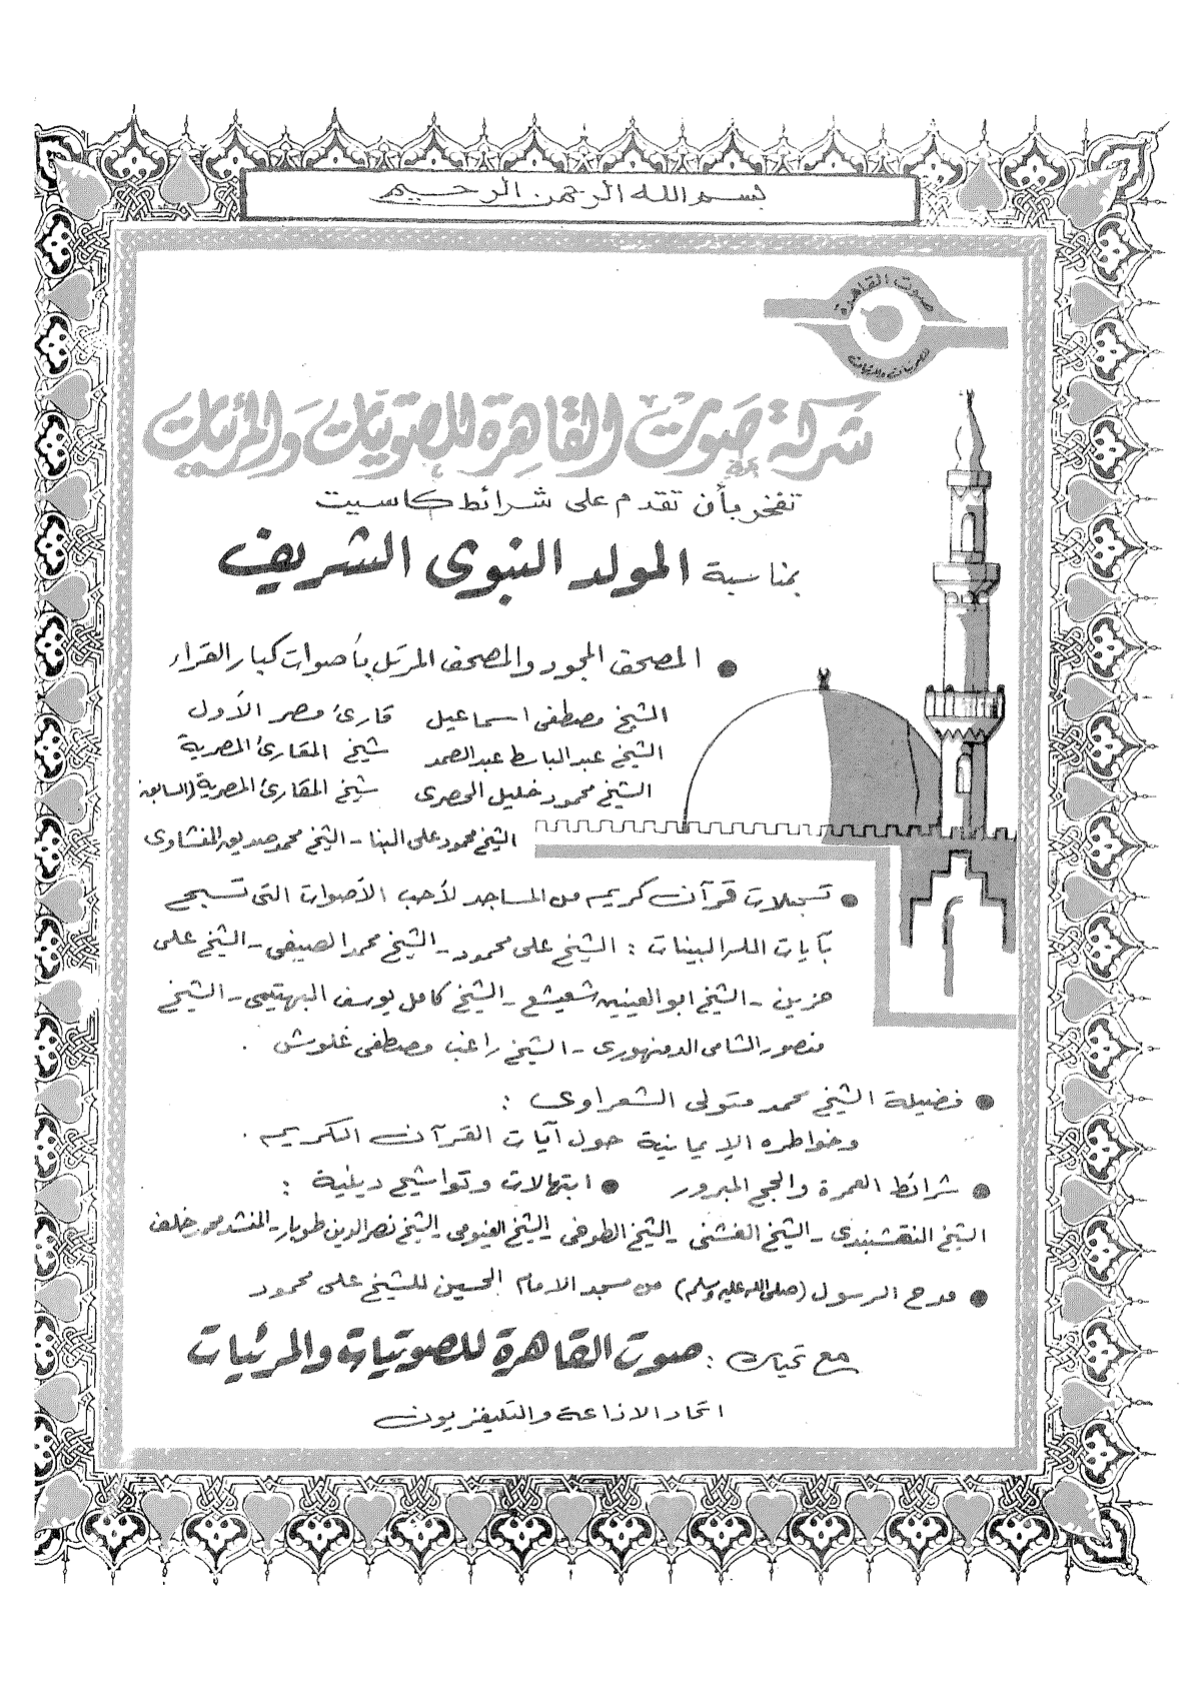 بسم الله الرحمن الرحيم
صوت القاهرة
للصوتيات والمرئيات
شركة صوت القاهرة للصوتيات والمرئيات
تفخر بأن تقدم على شرائط كاسيت
بمناسبة المولد النبوى الشريف
● المصحف المجود والمصحف المرتل بأصوات كبار القراء
الشيخ مصطفى اسماعيل قارئ مصر الأول
الشيخ عبد الباسط عبد الصمد شيخ المقارئ المصرية
الشيخ محمود خليل الحصرى شيخ المقارئ المصرية (السابق
الشيخ محمود على البنا - الشيخ محمد صديق المنشاوى
● تسجيلات قرآن كريم من المساجد لأحب الأصوات التى تسبح
بآيات الله البينات : الشيخ على محمود - الشيخ محمد الصيفى - الشيخ على
حزين - الشيخ ابو العينين شعيشع - الشيخ كامل يوسف البهتيمى - الشيخ
منصور الشامى الدمنهورى - الشيخ راغب مصطفى غلوش .
● فضيلة الشيخ محمد متولى الشعراوى :
وخواطره الإيمانية حول آيات القرآن الكريم .
● شرائط العمرة والحج المبرور ● ابتهالات وتواشيح دينية :
الشيخ النقشبندى - الشيخ الفشنى - الشيخ الطوخى - الشيخ الفيومى - الشيخ نصر الدين طوبار - المنشد محمد خلف
● مدح الرسول (صلى الله عليه وسلم) من مسجد الامام الحسين للشيخ على محمود
مع تحيات : صوت القاهرة للصوتيات والمرئيات
اتحاد الاذاعة والتليفزيون